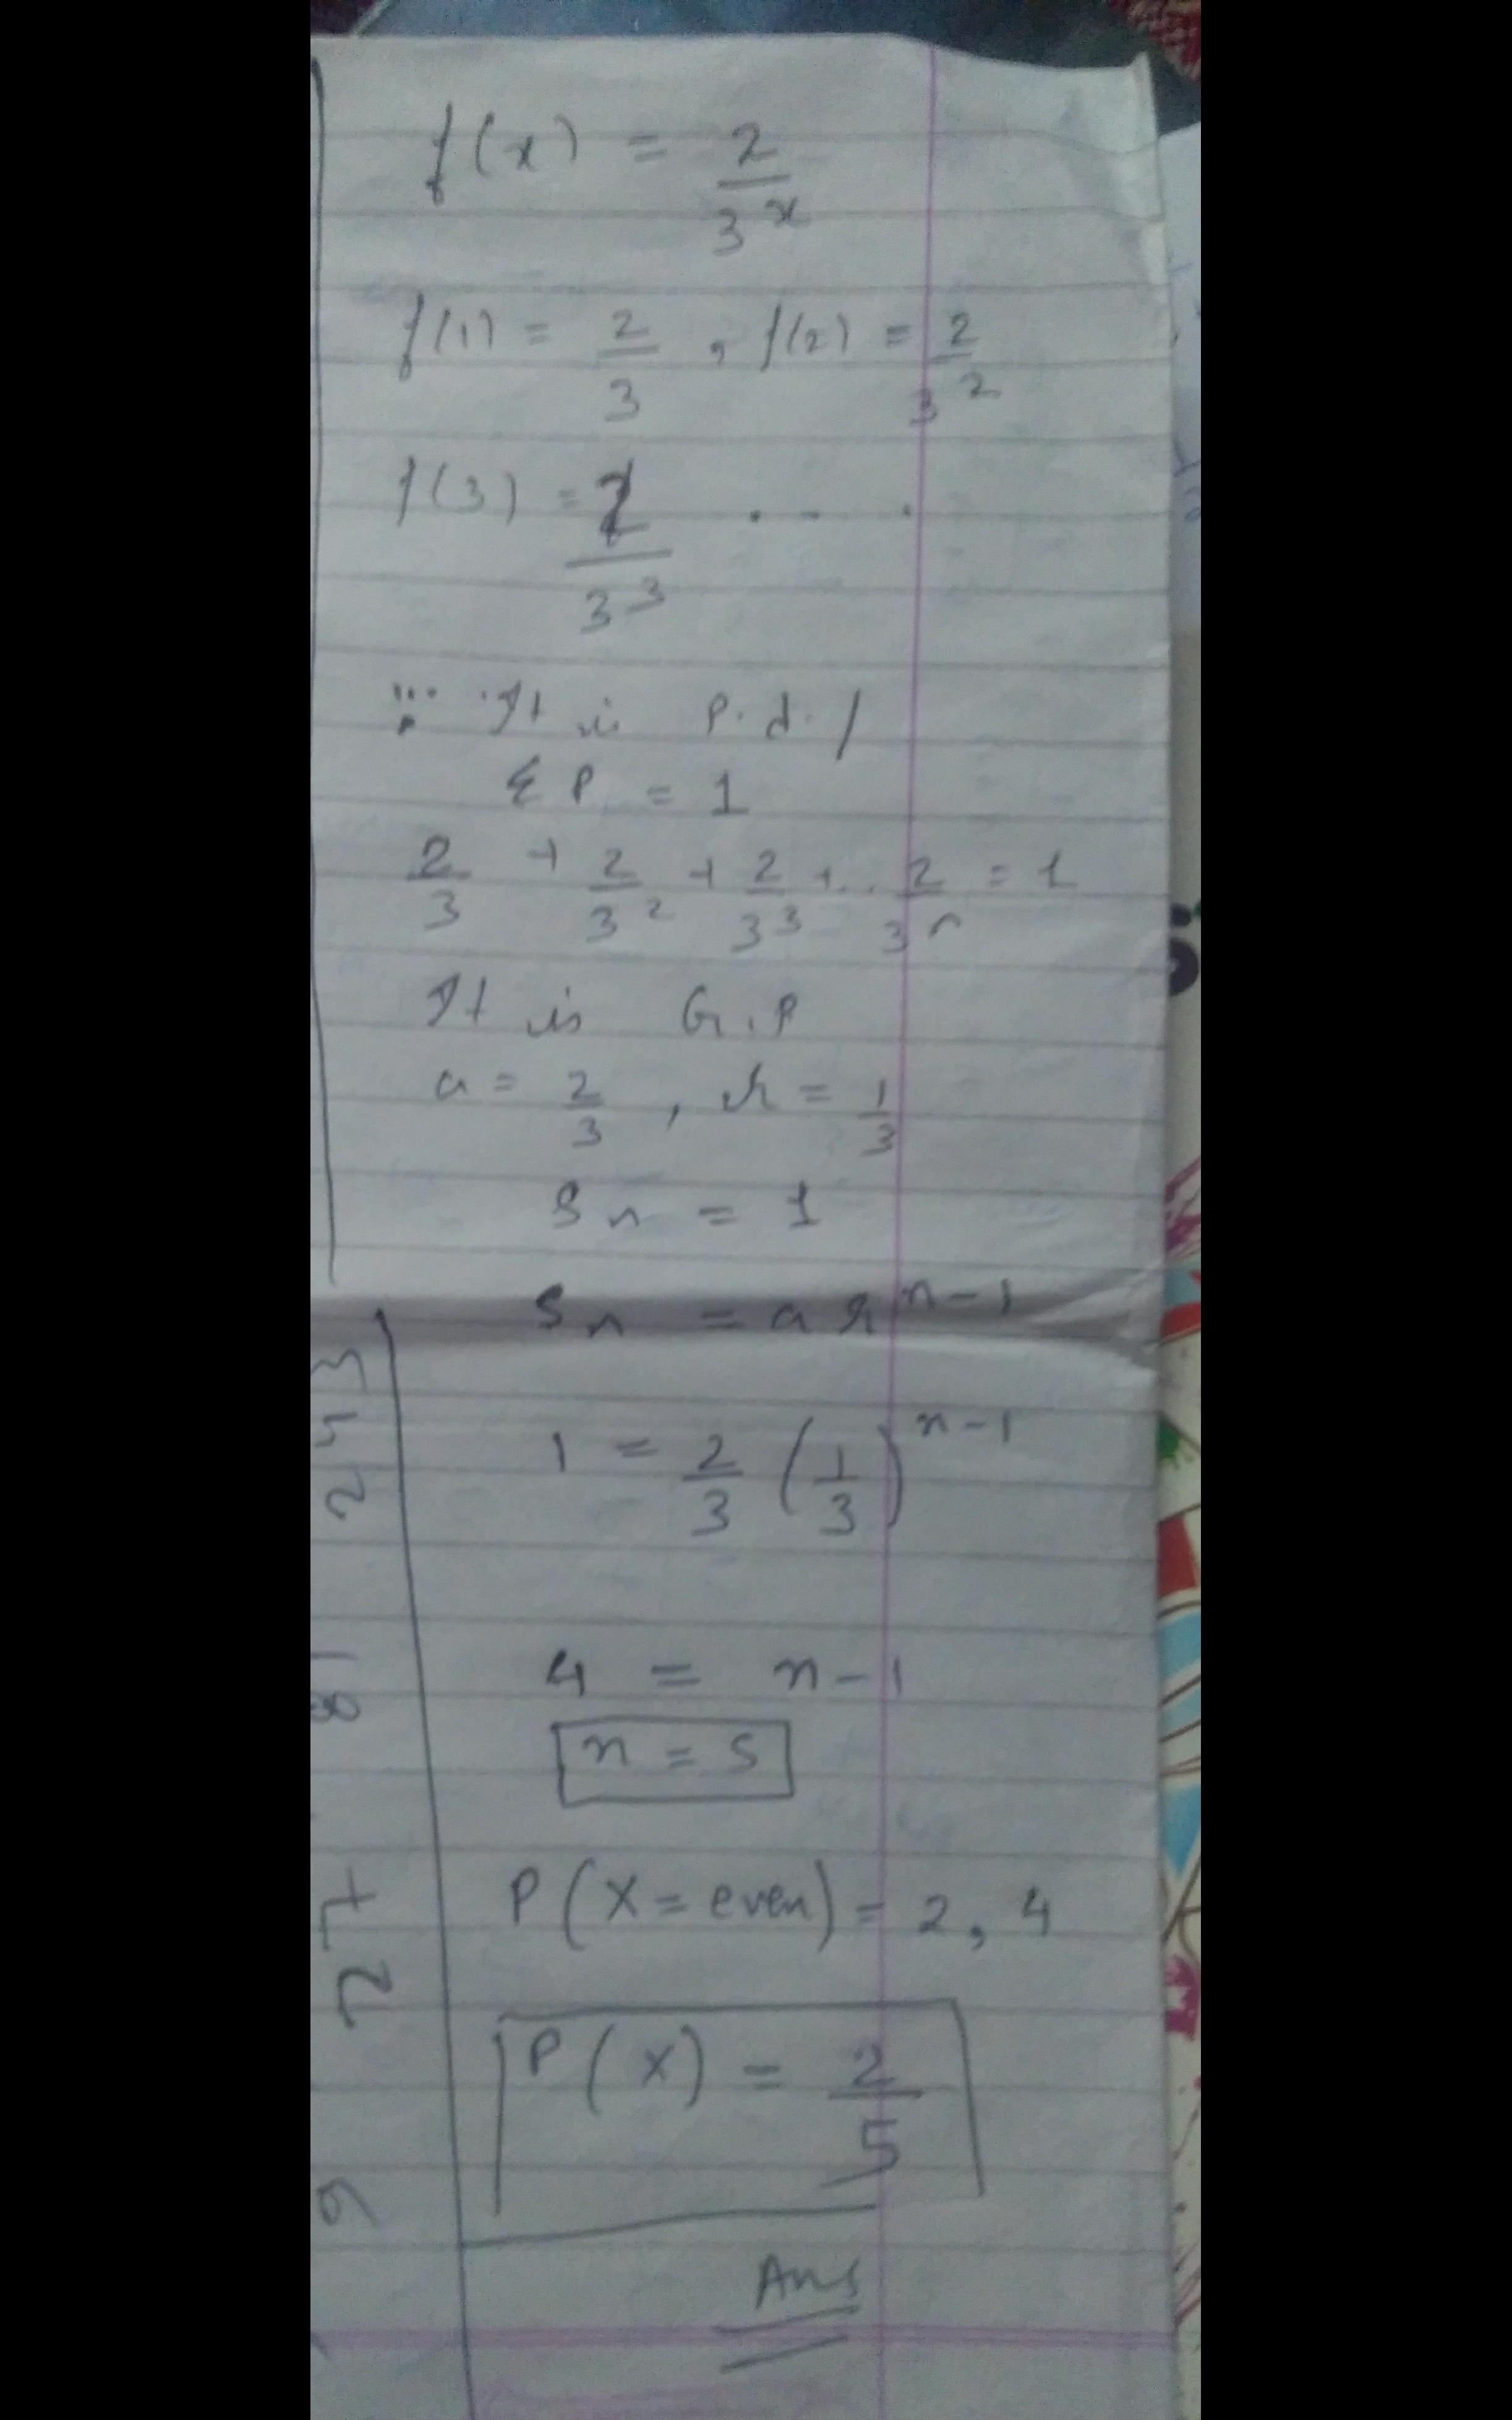 f(x) = 2/3^x
f(1) = 2/3 , f(2) = 2/3^2
f(3) = 2/3^3 . - .
∵ It is P.d.f
Σ P = 1
2/3 + 2/3^2 + 2/3^3 + .. 2/3^n = 1
It is G.P
a = 2/3 , r = 1/3
Sn = 1
Sn = a r^n-1
1 = 2/3 (1/3)^n-1
4 = n-1
n = 5
P (X = even) = 2, 4
P(X) = 2/5
Ans
9 27 81 243